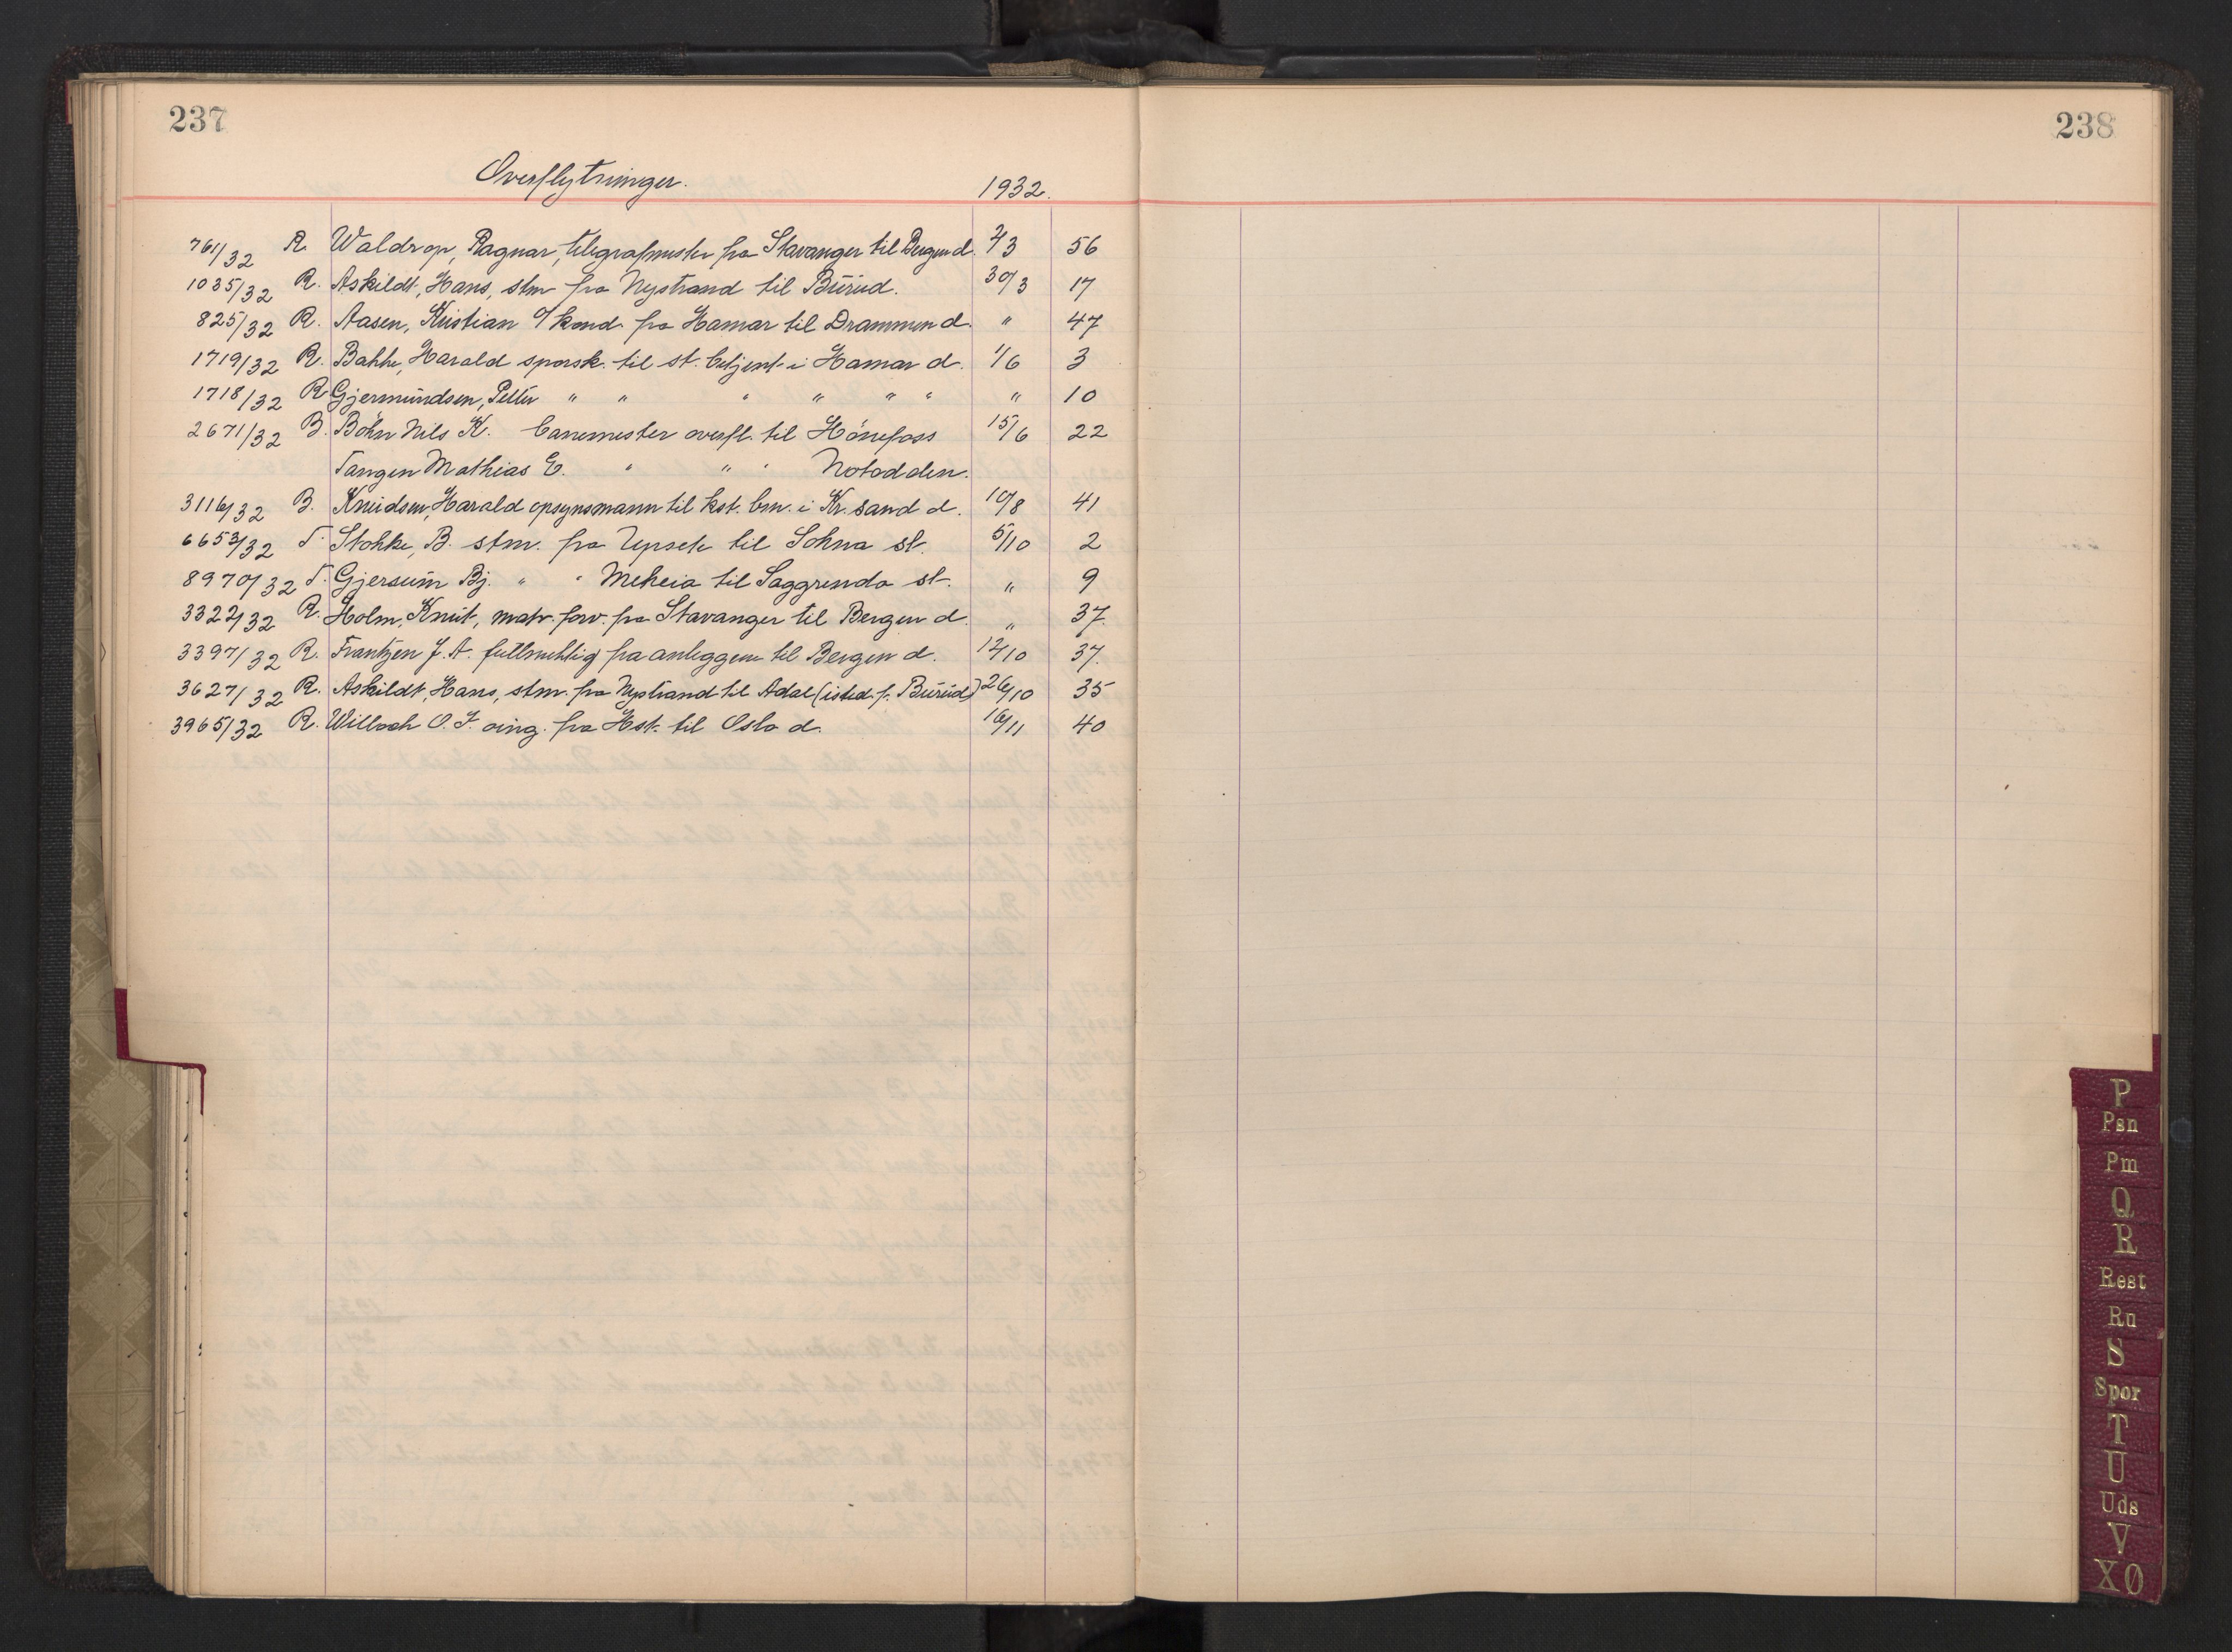 237
238
Overflytninger.
1932.
761/32 R. Waldrop, Ragnar, telegrafmester fra Stavanger til Bergen d. 2/3 56
1035/32 R. Askildt, Hans, stm fra Nystrand til Burud. 30/3 17
825/32 R. Aasen, Kristian o/kond. fra Hamar til Drammen d. " 47
1719/32 R. Bakke, Harald sporsk. til st. betjent i Hamar d. 1/6 3
1718/32 R Gjermundsen, Petter " " " " " " " 10
2671/32 B. Böhn Nils K. banemester overfl. til Hönefoss 15/6 22
Tangen Mathias E. " " " Notodden.
3116/32 B. Knudsen, Harald opsynsmann til kst. bm. i Kr. sand d. 10/8 41
6653/32 T. Stokke, B. stm. fra Upsete til Sokna st. 5/10 2
8970/32 T. Gjersum Bj. " " Meheia til Saggrenda st. " 9
3322/32 R. Holm, Knut, matr. forv. fra Stavanger til Bergen d. " 37.
3397/32 R. Frantzen J. A. fullmektig fra anleggene til Bergen d. 12/10 37.
3627/32 R. Askildt, Hans, stm. fra Nystrand til Adal (isted. f. Burud) 26/10 35
3965/32 R. Willoch O. I. oing. fra Hst. til Oslo d. 16/11 40
P
Psn
Pm
Q
R
Rest
Ru
S
Spor
T
U
Uds
V
XØ